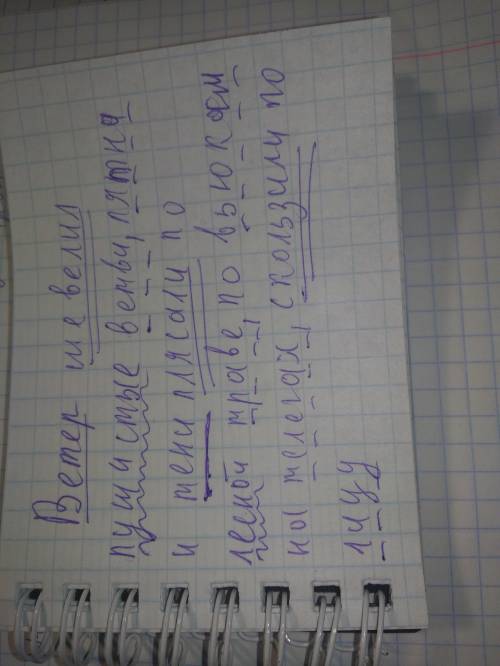 Ветер шевелил
пушистые ветви, пятна
и тени плясали по
лесной траве, по вьюкам
на телегах, скользили по
лицу